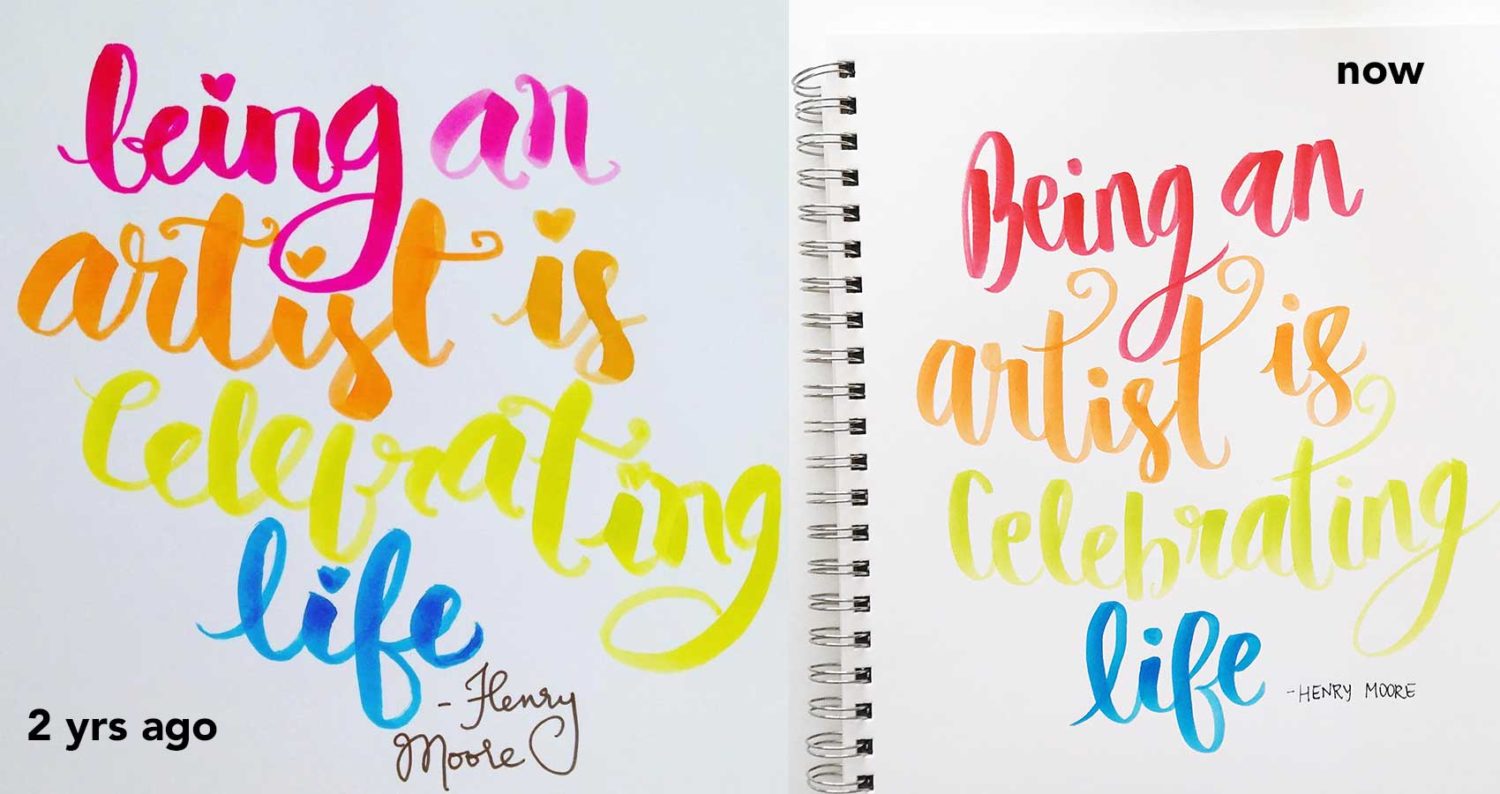 being an
artist is
Celebrating
life
- Henry
Moore
2 yrs ago
now
Being an
artist is
Celebrating
life
- HENRY MOORE